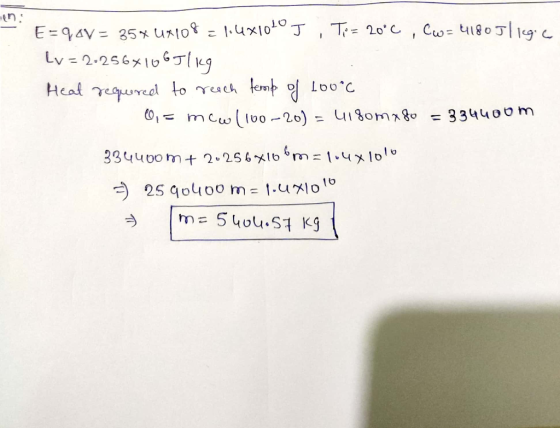 E = qΔV = 35 × 4×10⁸ = 1.4×10¹⁰ J , Tᵢ = 20°C , Cw = 4180 J/kg·c
Lv = 2.256×10⁶ J/kg
Heat required to reach temp of 100°C
Q₁ = mcw(100-20) = 4180m×80 = 334400m
334400m + 2.256×10⁶m = 1.4×10¹⁰
⇒ 2590400m = 1.4×10¹⁰
⇒ m = 5404.57 kg